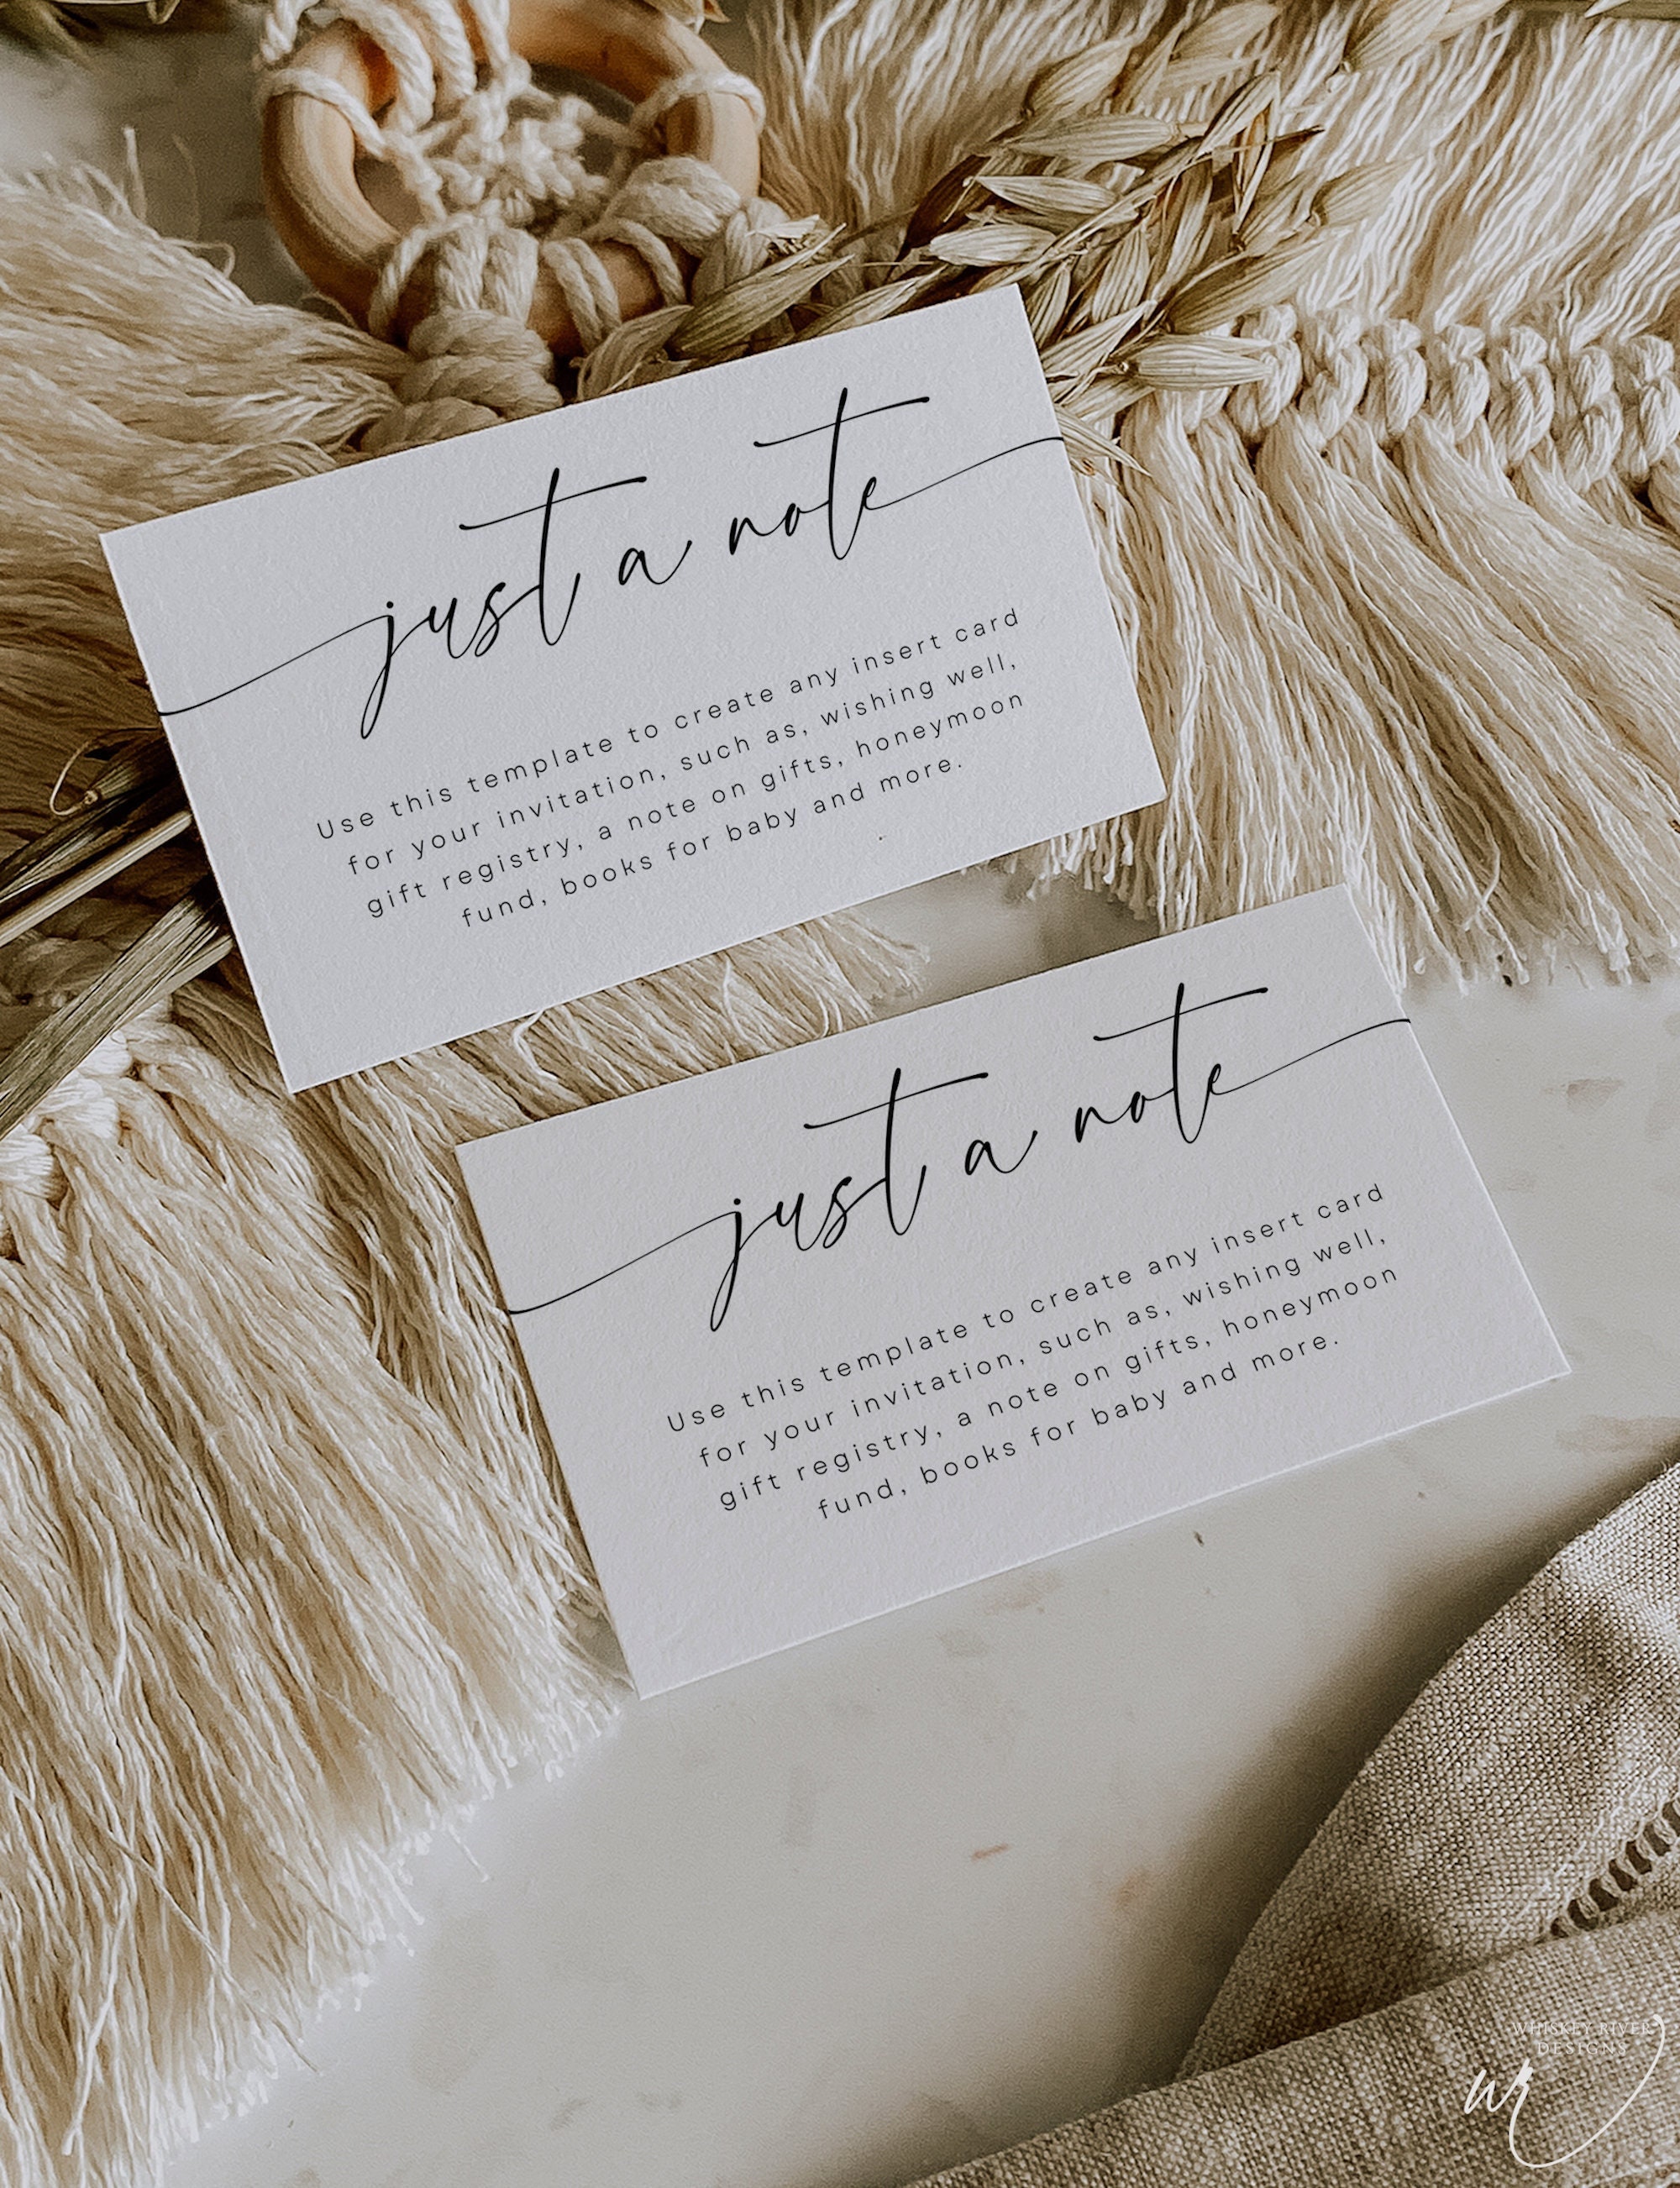 just a note
Use this template to create any insert card
for your invitation, such as, wishing well,
gift registry, a note on gifts, honeymoon
fund, books for baby and more.
just a note
Use this template to create any insert card
for your invitation, such as, wishing well,
gift registry, a note on gifts, honeymoon
fund, books for baby and more.
WHISKEY RIVER
DESIGNS
wr